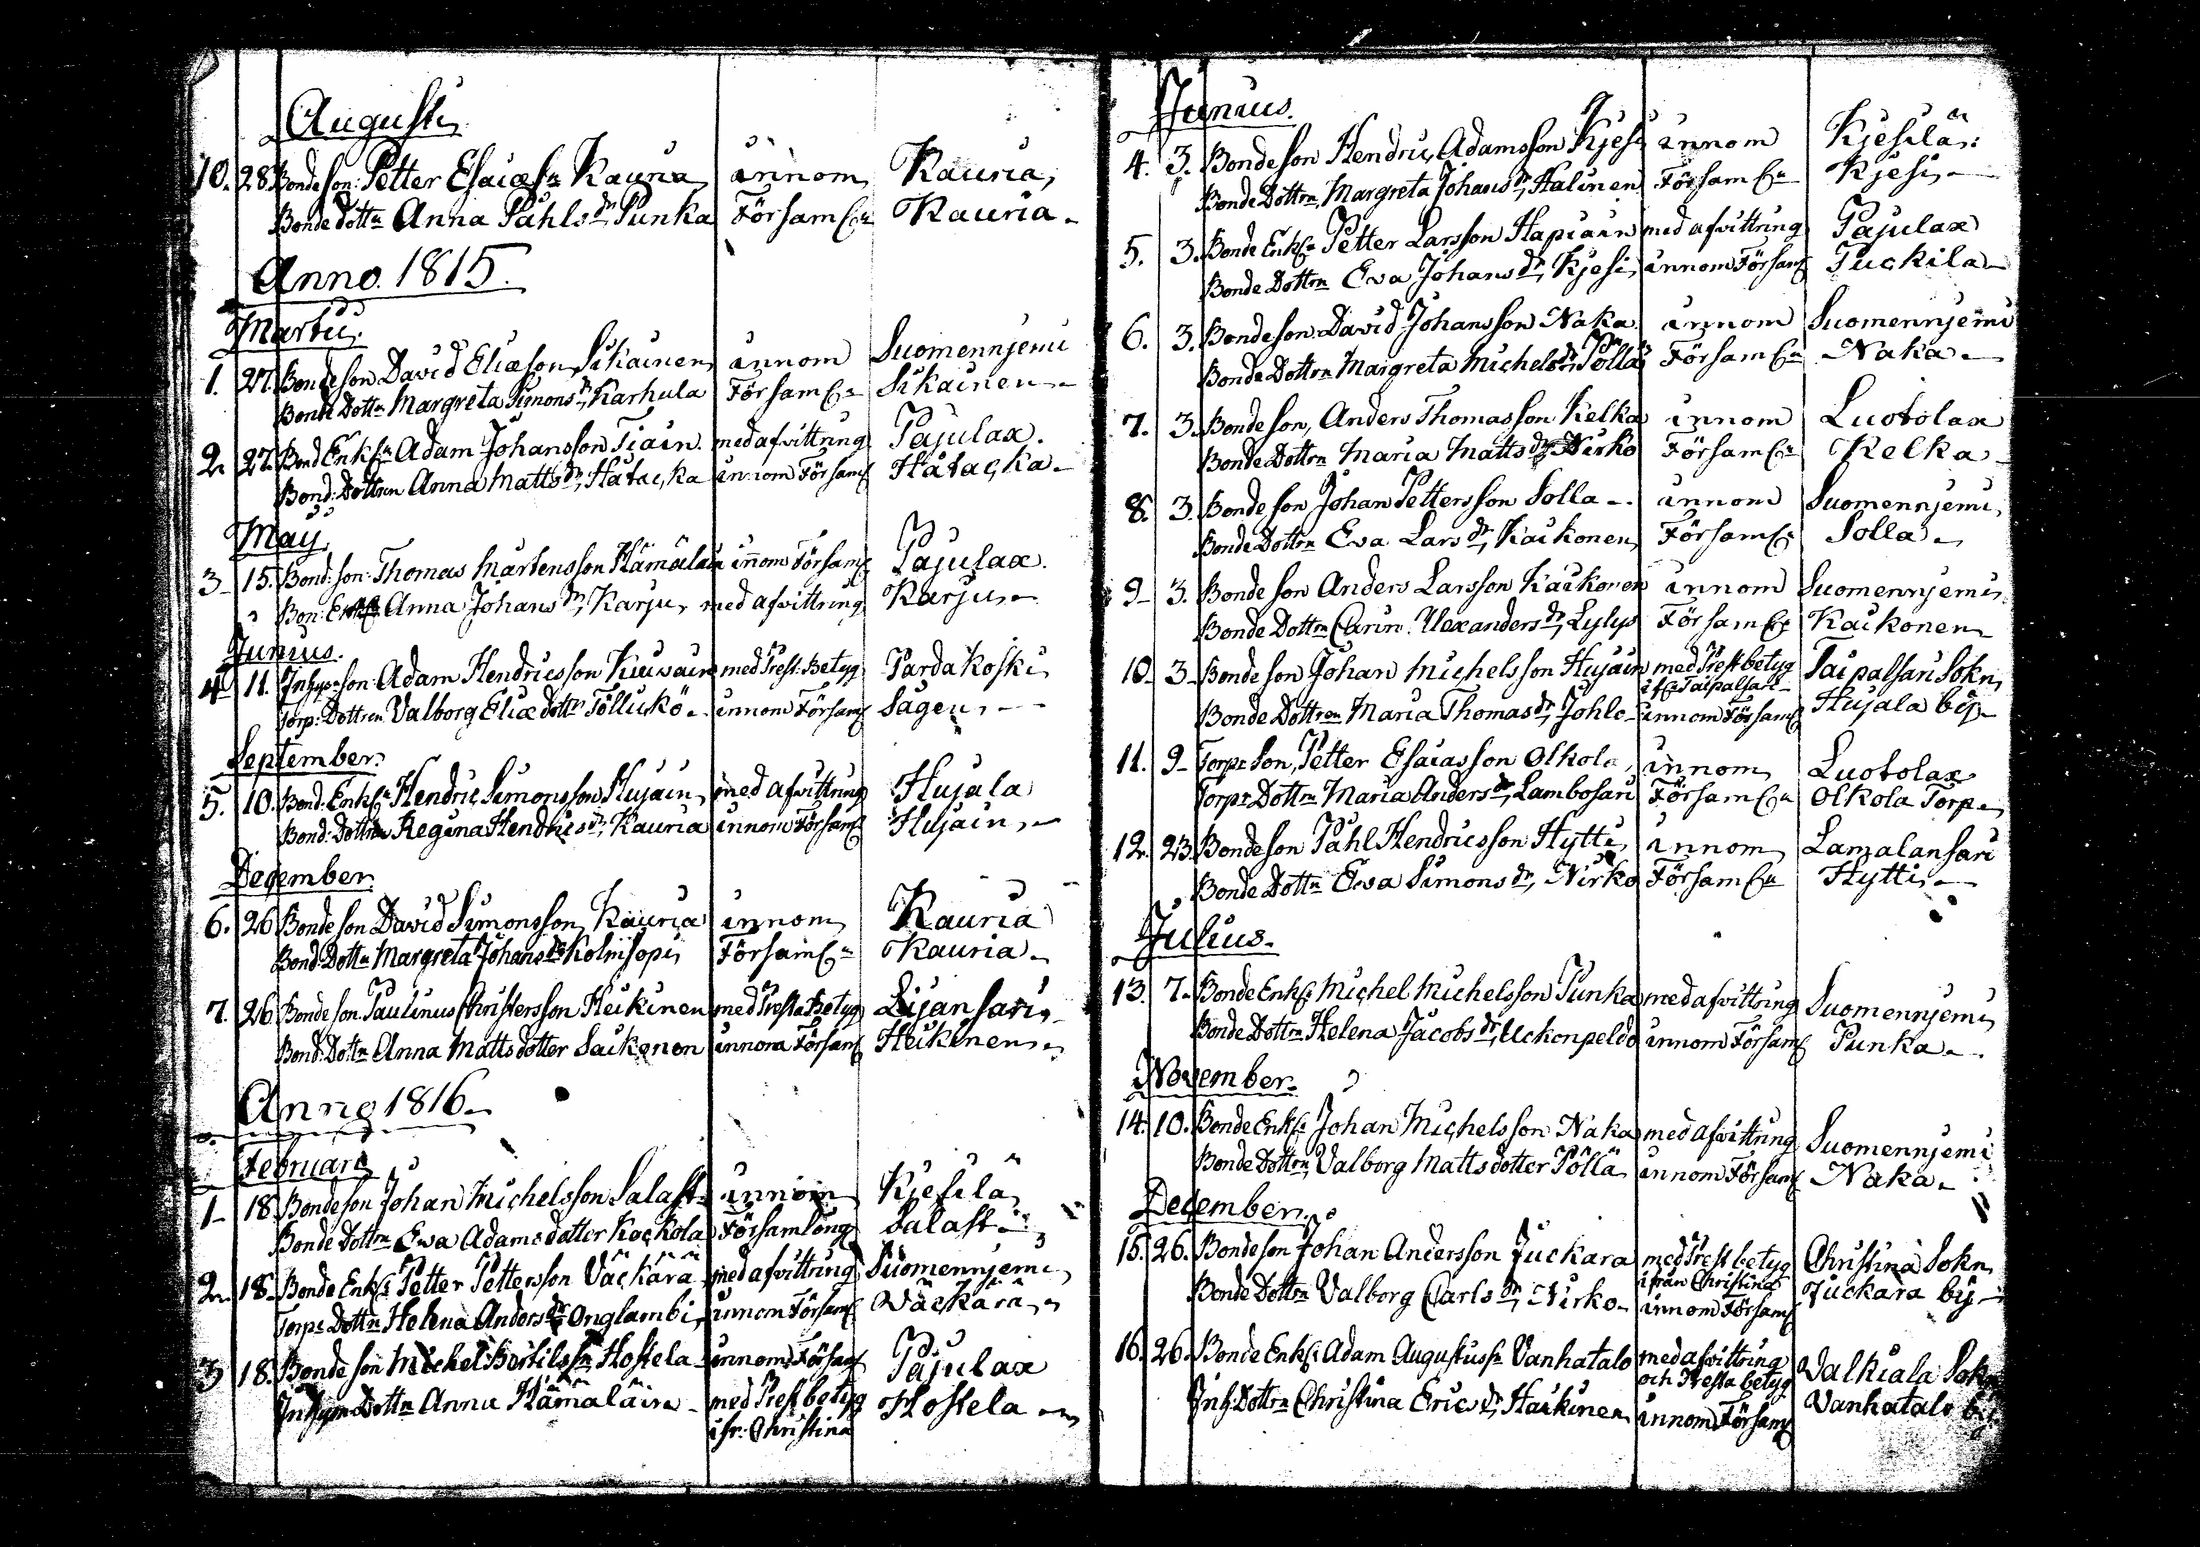 Augusti
10. 28. Bonde son: Petter Esaiæsn Kauria innom Kauria,
Bonde Dottn Anna Påhlsdr Punka Församl:n Kauria
Anno 1815.
Martii.
1. 27. Bonde son David Eliæson Sikainen innom Suomennjemi
Bonde Dottn Margreta Simonsdr, Karhula Församl:n Sikainen
2. 27. Bond Enkl:n Adam Johansson Tiain. med afvittring Pajulax.
Bond: Dottren Anna Mattsdr, Hatacka innom Församl Hatacka
Maij
3 15. Bond: son: Thomas Mårtensson Hämäläin innom Församl Pajulax.
Bon: Anna Johansdr, Karju, med afvittring Karju
Junius.
4 11. Inhys-son: Adam Hendricsson Kiuvain med Prest: Betyg Pardakoski
Torp: Dottren Valborg Eliæ dottr Töllickö innom Församl Sagen
September.
5. 10. Bond: Enkl:n Hendric Simonsson Hujain, med afvittring Hujala
Bond: Dottren Regina Hendricsdr, Kauria innom Församl Hujain
December
6. 26 Bonde son David Simonsson, Kauria innom Kauria
Bond: Dottn Margreta Johansdr Kolmisopi Församl:n Kauria
7. 26 Bonde son. Paulinus Christersson Heikinen med Presta Betyg Lijansari
Bond: Dottn Anna Matts dotter Saikonen innom Församl Heikinen
Anno 1816
Februari
1 18. Bonde son Johan Michelsson Salast innom Kjesilä
Bonde Dottrn Ewa Adams dotter Kockola Församlöng Salast
2 18 Bonde Enkl: Petter Pettersson Väckärä med afvittring Suomennjemi
Torp: Dottrn Helena Andersdr Onglambi, innom Församl Väckärä
3 18. Bonde son Michel Bertilssn Hostela innom Församl Pajulax
Inhys Dottrn Anna Hämäläin med Prest betyg Hostela
ifr: Christina
Junius.
4. 3. Bonde son Hendric Adamsson Kjesi innom Kjesilä:
Bonde Dottrn, Margreta Johansdr, Halinen Församl:n Kjesi,
5. 3. Bonde Enkl:n Petter Larsson Hapiain med afvittring Pajulax
Bonde Dottrn Eva Johansdr, Kjesi, innom Församl Tuckila
6. 3. Bonde son David Johansson Naka innom Suomennjemi
Bonde Dottrn Margreta Michelsdr, Pöllä Församl:n Naka
7. 3. Bonde son, Anders Thomasson Kelka innom Luotolax
Bonde Dottrn Maria Mattsdr Nirko Församl:n Kelka
8. 3. Bonde son Johan Pettersson Solla innom Suomennjemi,
Bonde Dottrn Eva Larsdr, Kaikonen Församl:n Solla
9 3. Bonde son Anders Larsson Kaikonen innom Suomennjemi
Bonde Dottrn Carin Alexandersdr, Lylys Församl:n Kaikonen
10 3 Bonde son Johan Michelsson Hujain med Prest betyg Taipalsari Sokn,
ifr: Taipalsari
Bonde Dottren Maria Thomasdr, Johlo innom Församl Hujala by
11. 9 Torpr Son, Petter Esaiasson Olkola, innom Luotolax
Torpr Dottrn Maria Andersdr, Lambosari Församl:n Olkola Torp
12. 23. Bonde son Påhl Hendricsson Hytti, innom Lamalansari
Bonde Dottn Ewa Simonsdr, Nirko Församl:n Hytti
Julius.
13. 7. Bonde Enkl: Michel Michelsson Punka med afvittring Suomennjemi
Bonde Dottrn Helena Jacobsdr, Uckonpeldo innom Församl Punka
November.
14. 10. Bonde Enkl: Johan Michelsson Naka med afvittring Suomennjemi
Bonde Dottrn, Valborg Matts dotter Pöllä innom Församl Naka
December.
15. 26. Bonde son Johan Andersson Juckara med Prest betyg Christina Sokn
ifrån Christina
Bonde Dottrn Valborg Carlsdr, Nirko innom Församl Juckara by
16. 26. Bonde Enkl: Adam Augustussn Vanhatalo med afvittring Valkiala Sokn
och Presta betyg
Inh: Dottrn Christina Ericsdr, Haikinen innom Församl Vanhatalo by